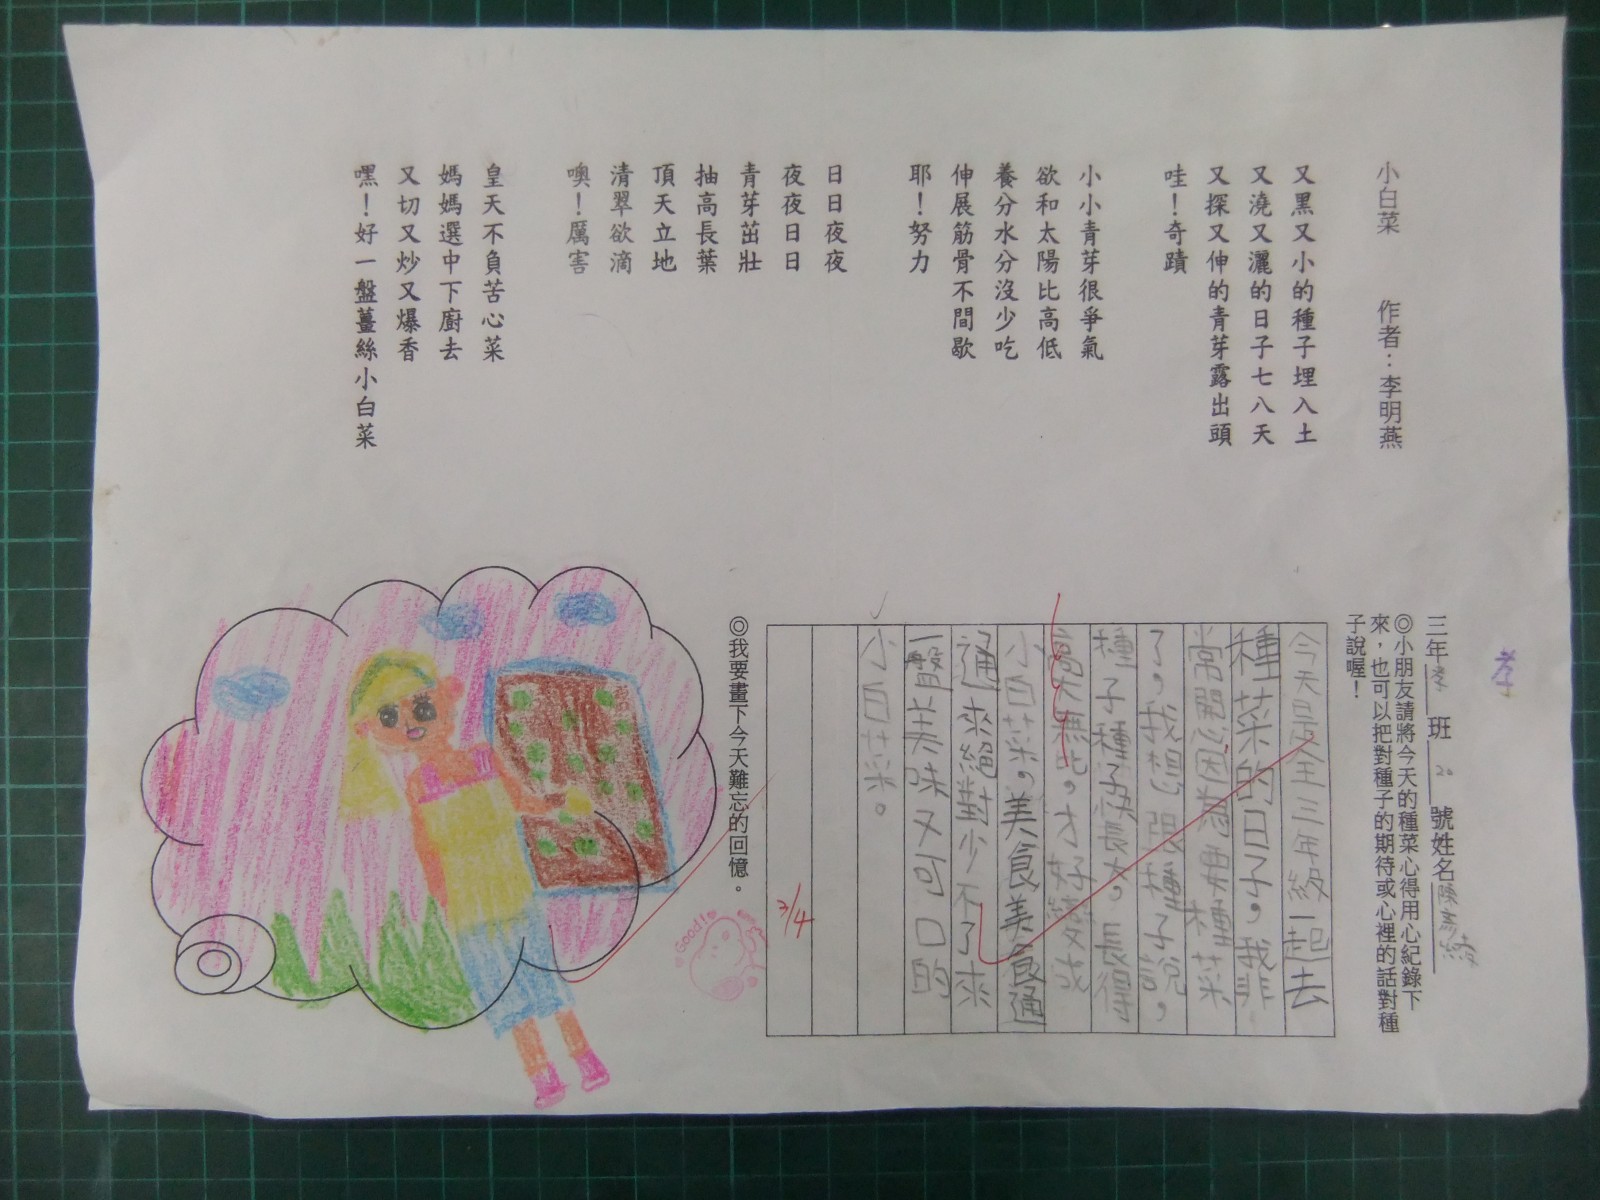 小白菜　　作者：李明燕
又黑又小的種子埋入土
又澆又灑的日子七八天
又探又伸的青芽露出頭
哇！奇蹟
小小青芽很爭氣
欲和太陽比高低
養分水分沒少吃
伸展筋骨不間歇
耶！努力
日日夜夜
夜夜日日
青芽茁壯
抽高長葉
頂天立地
清翠欲滴
噢！厲害
皇天不負苦心菜
媽媽選中下廚去
又切又炒又爆香
嘿！好一盤薑絲小白菜
孝
三年孝班 20 號姓名
◎小朋友請將今天的種菜心得用心紀錄下
來，也可以把對種子的期待或心裡的話對種
子說喔！
今天是全三年級一起去
種菜的日子，我非
常開心因為要種菜
了，我想跟種子說，
種子種子快長大，長得
高大無比，才好變成
小白菜。美食美食通
通來絕對少不了來
一盤美味又可口的
小白菜。
3/4
Good!
◎我要畫下今天難忘的回憶。